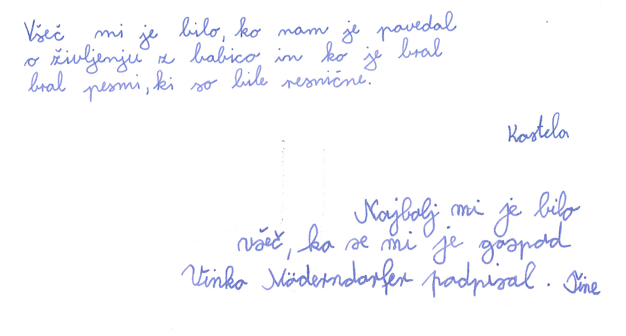 Všeč mi je bilo, ko nam je povedal
o življenju z babico in ko je bral
bral pesmi, ki so bile resnične.
Kastela
Najbolj mi je bilo
všeč, ko se mi je gospod
Vinko Möderndorfer podpisal. Tine